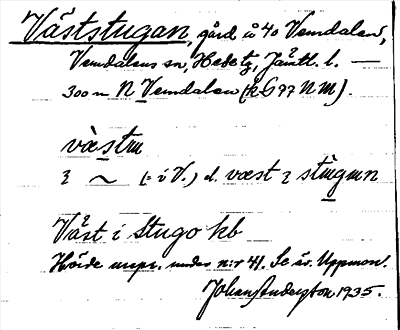 Väststugan, gård å 40 Vemdalen,
Vemdalens sn, Hede tg, Jämtl. l. —
300 m N Vemdalen (k G 97 N M).
væstru
ʒ ~ (: i V.) el. væst ʒ stugun
Väst i Stugo kb
Hörde urspr. under n:r 41. Se äv. Uppmon.
Johan Anderston 1935.